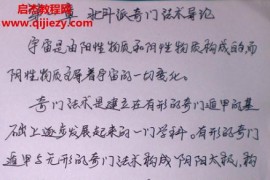 启杰教程网
qijiezy.com
第一章 北斗派奇门法术导论
宇宙是由阳性物质和阴性物质构成的而
阴性物质主宰着宇宙的一切变化。
奇门法术是建立在有形的奇门遁甲的基
础上逐步发展起来的一门学科。有形的奇门
遁甲与无形的奇门法术构成阴阳太极,构